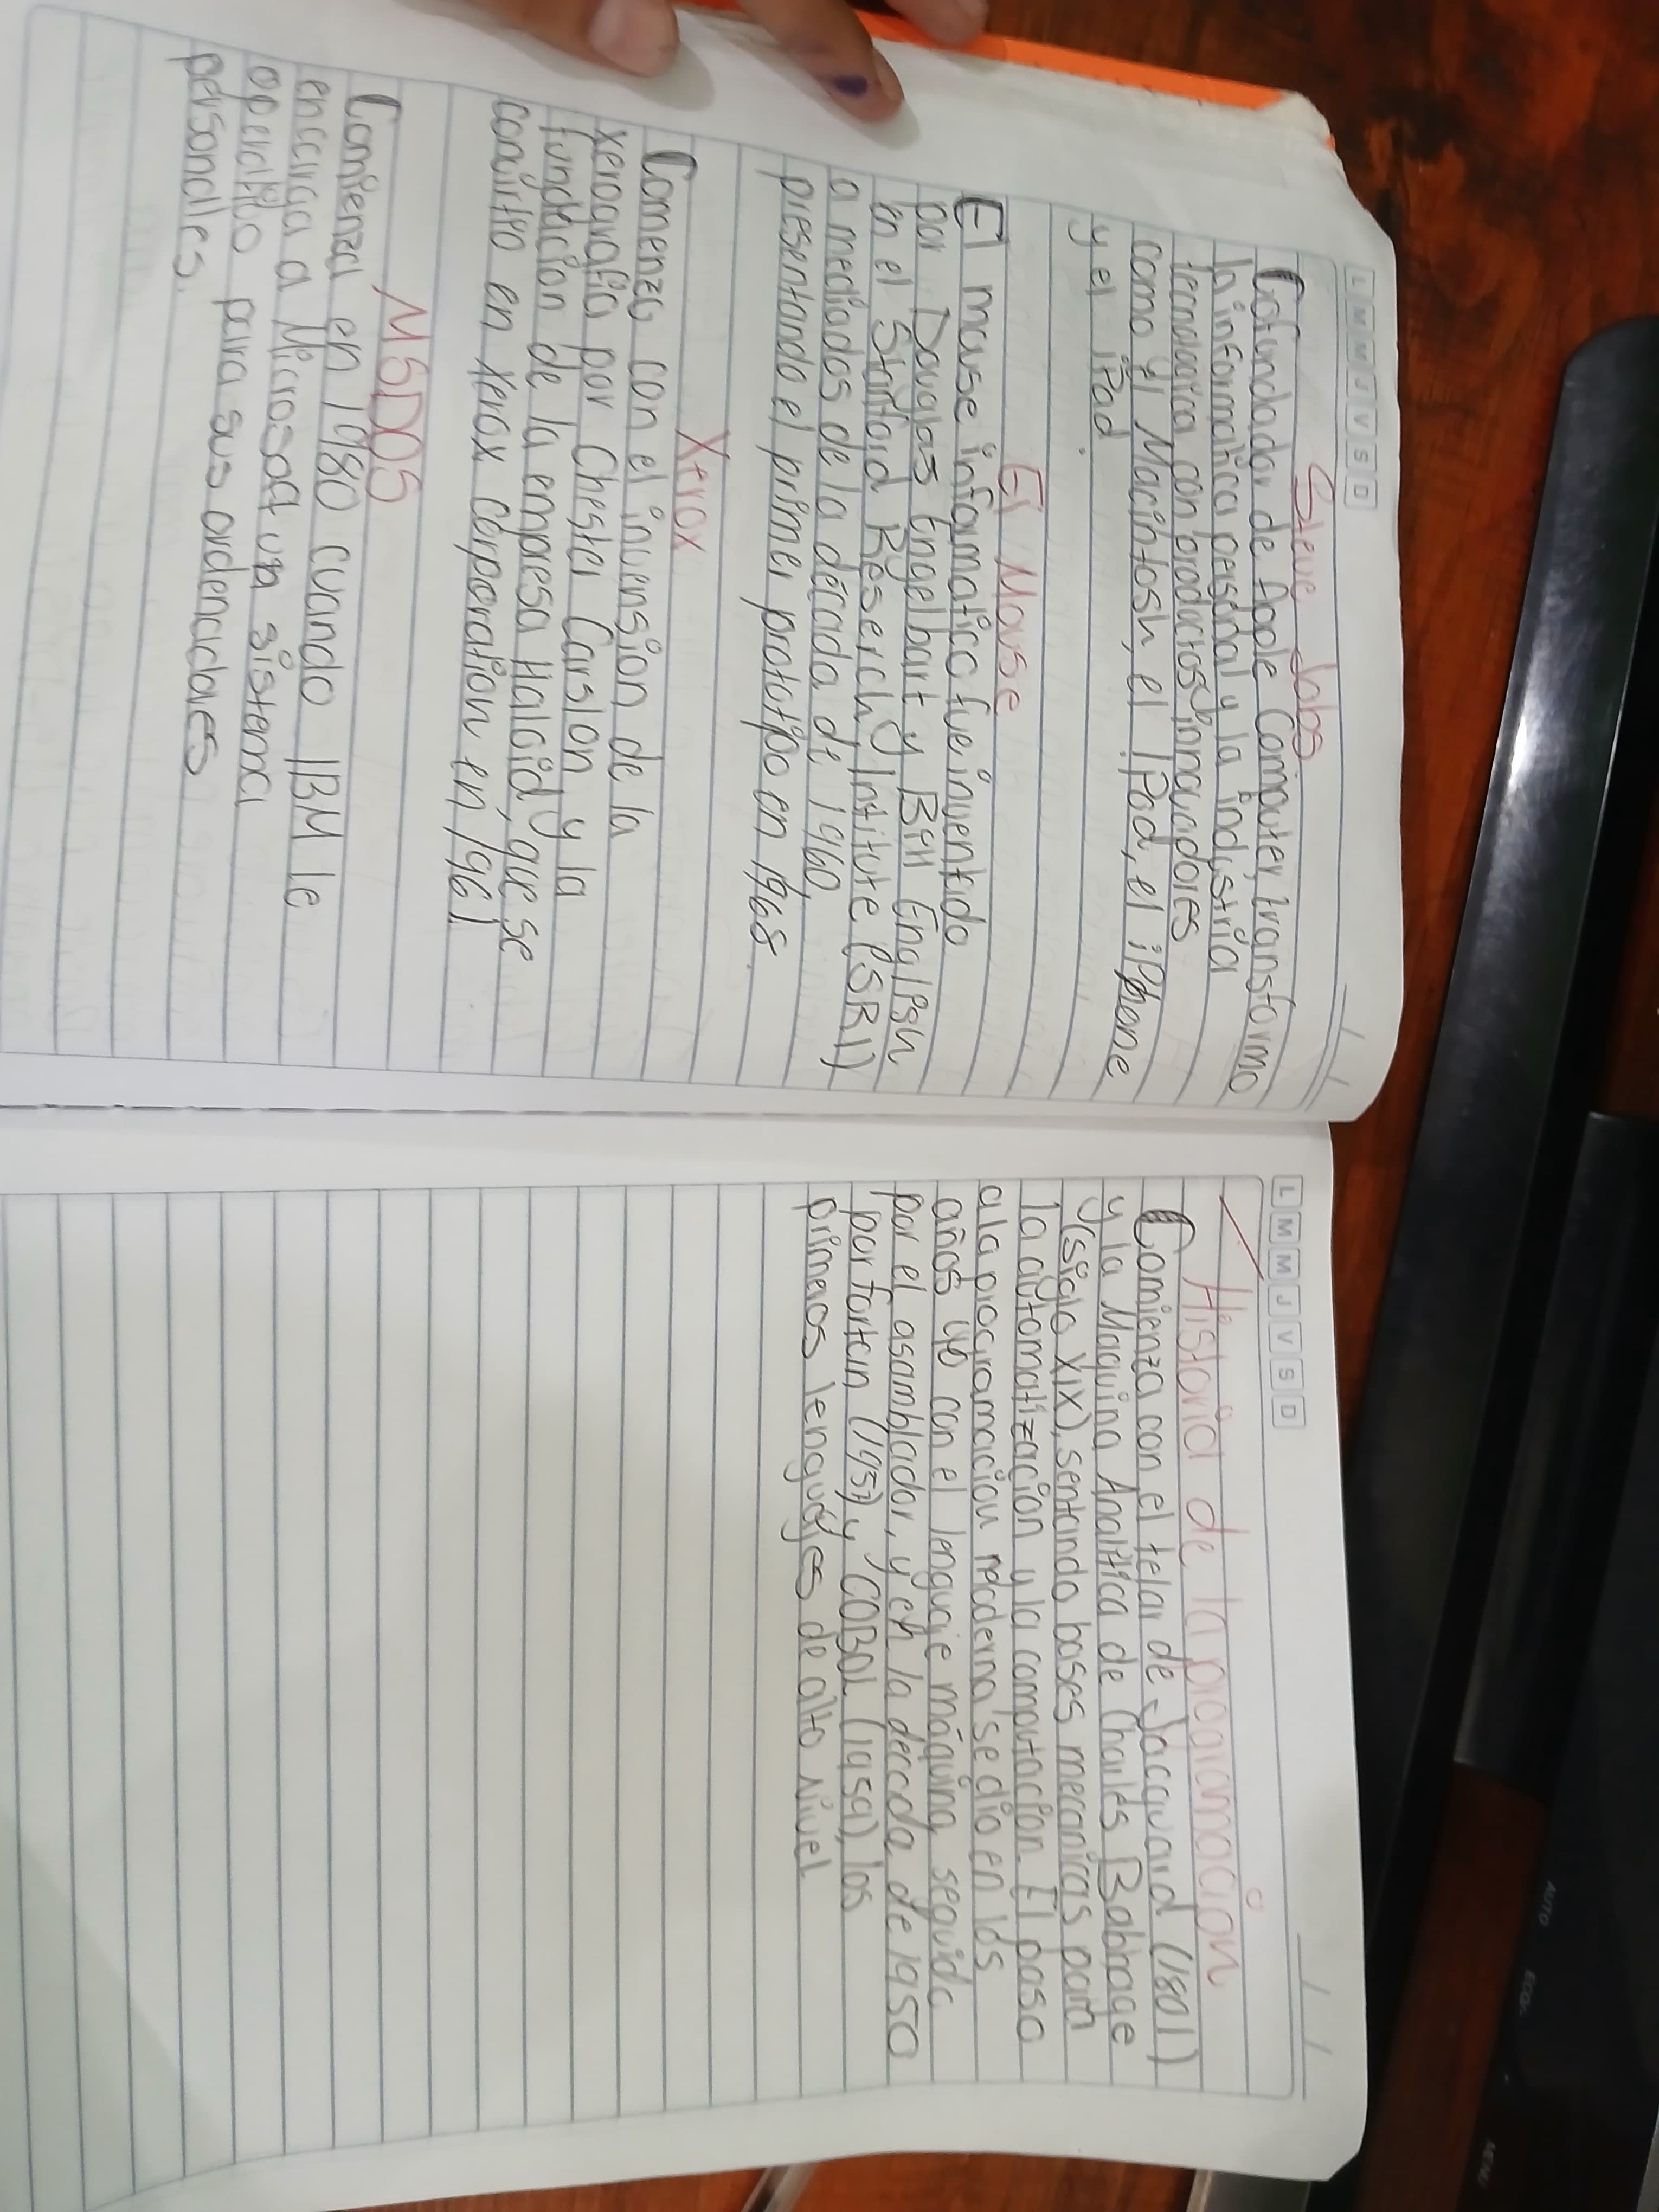 L M M J V S D
Steve Jobs
Cofundador de Apple Computer, transformo
la informatica personal y la industria
tecnologica con productos innovadores
como el Macintosh, el iPod, el iPhone
y el iPad.
El Mouse
El mouse informatico fue inventido
por Douglas Engelbart y Bill English
en el Stanford Reserch Institute (SRI)
a mediados de la década de 1960,
presentando el primer prototipo en 1968.
Xerox
Comenzo con el invension de la
xerografia por Chester Carslon y la
fundacion de la empresa Haloid, que se
convirtio en Xerox Corporation en 1961
MSDOS
Comienza en 1980 cuando IBM le
encarga a Microsoft un sistema
operativo para sus ordenadores
personales.
L M M J V S D
Historia de la programacion
Comienza con el telar de Jacquard (1801)
y la Maquina Analitica de Charles Babbage
(siglo XIX), sentando bases mecanicas para
la automatizacion y la computacion. El paso
a la programacion moderna se dio en los
años 40 con el lenguaje máquina, seguido
por el asamblador, y en la decada de 1950
por fortran (1957) y COBOL (1959), los
primeros lenguajes de alto nivel
AUTO
ECO
MENU